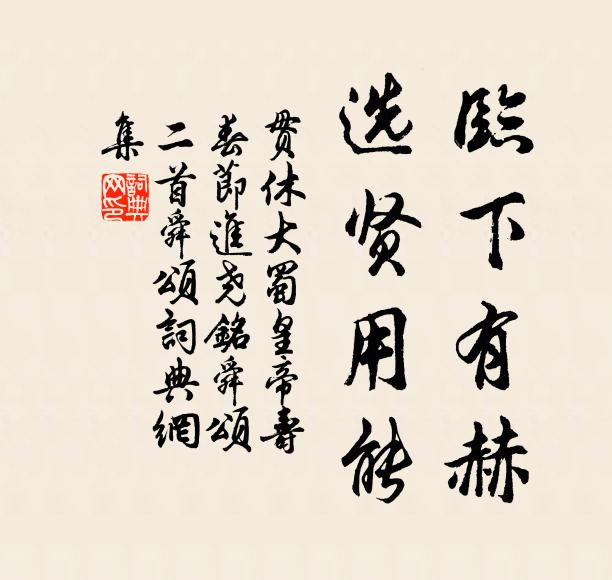 臨下有赫
选贤用能
貫休大蜀皇帝壽
春節進尧銘舜頌
二首舜頌詞典網
集
詞典
网印